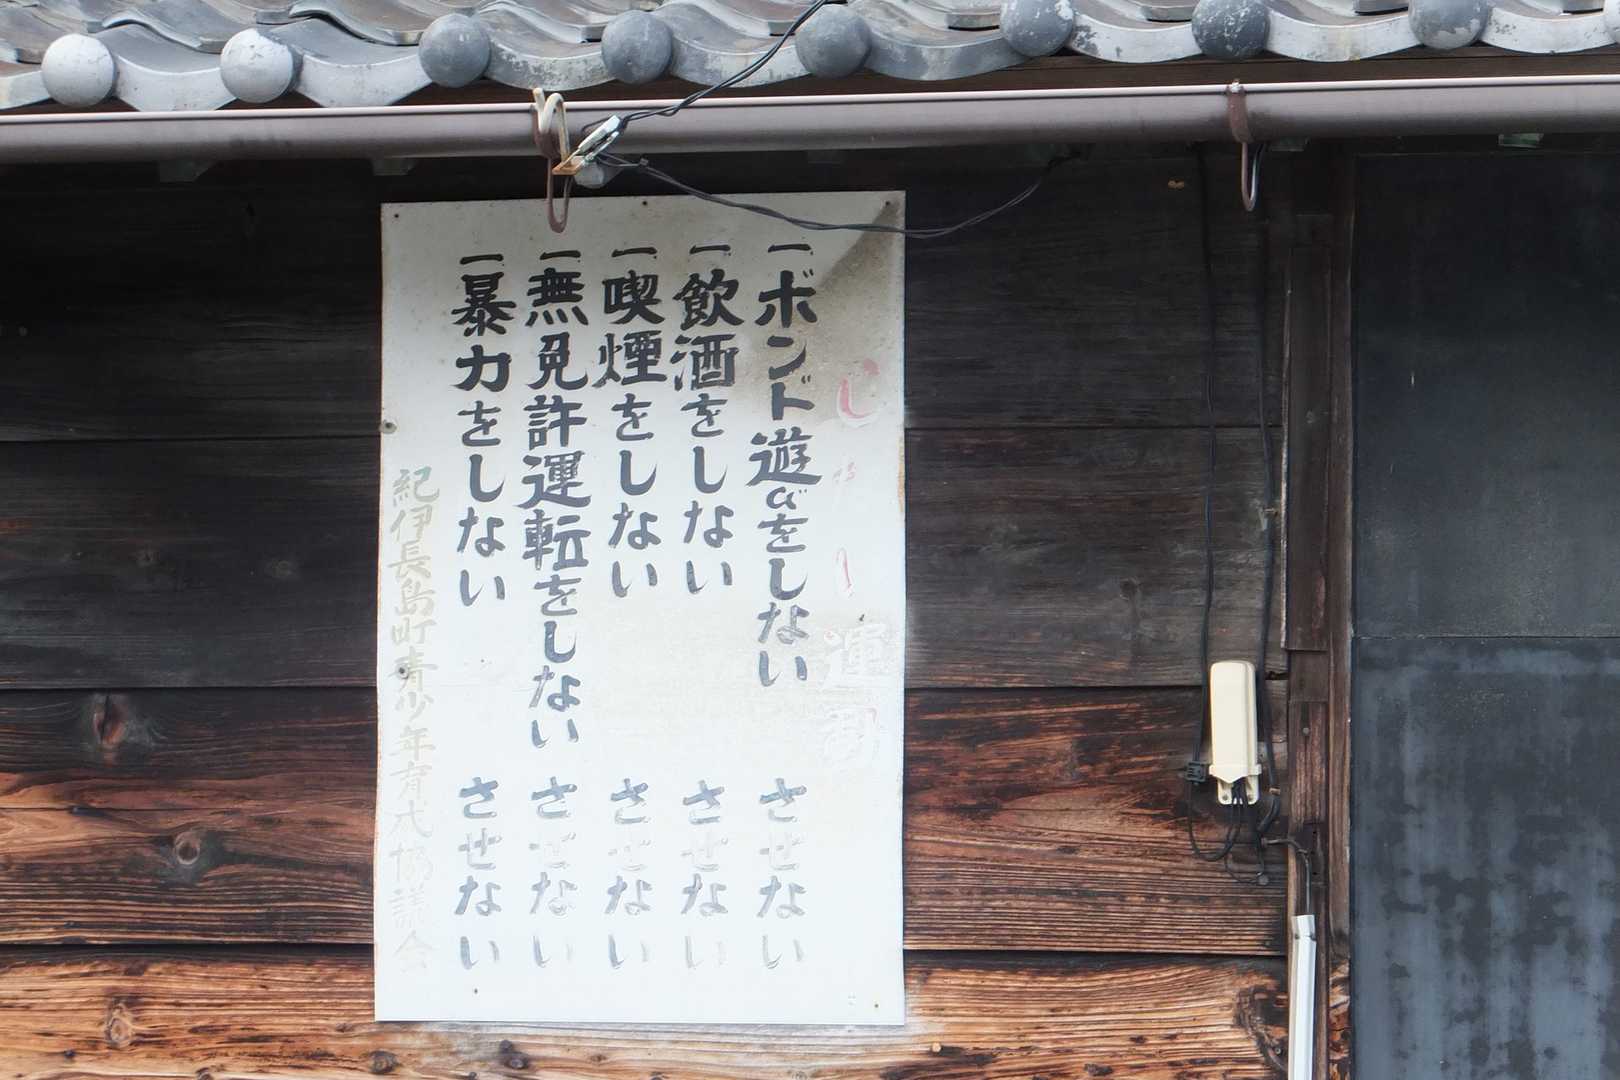 運動
一ボンド遊びをしない　させない
一飲酒をしない　させない
一喫煙をしない　させない
一無免許運転をしない　させない
一暴力をしない　させない
紀伊長島町青少年育成協議会